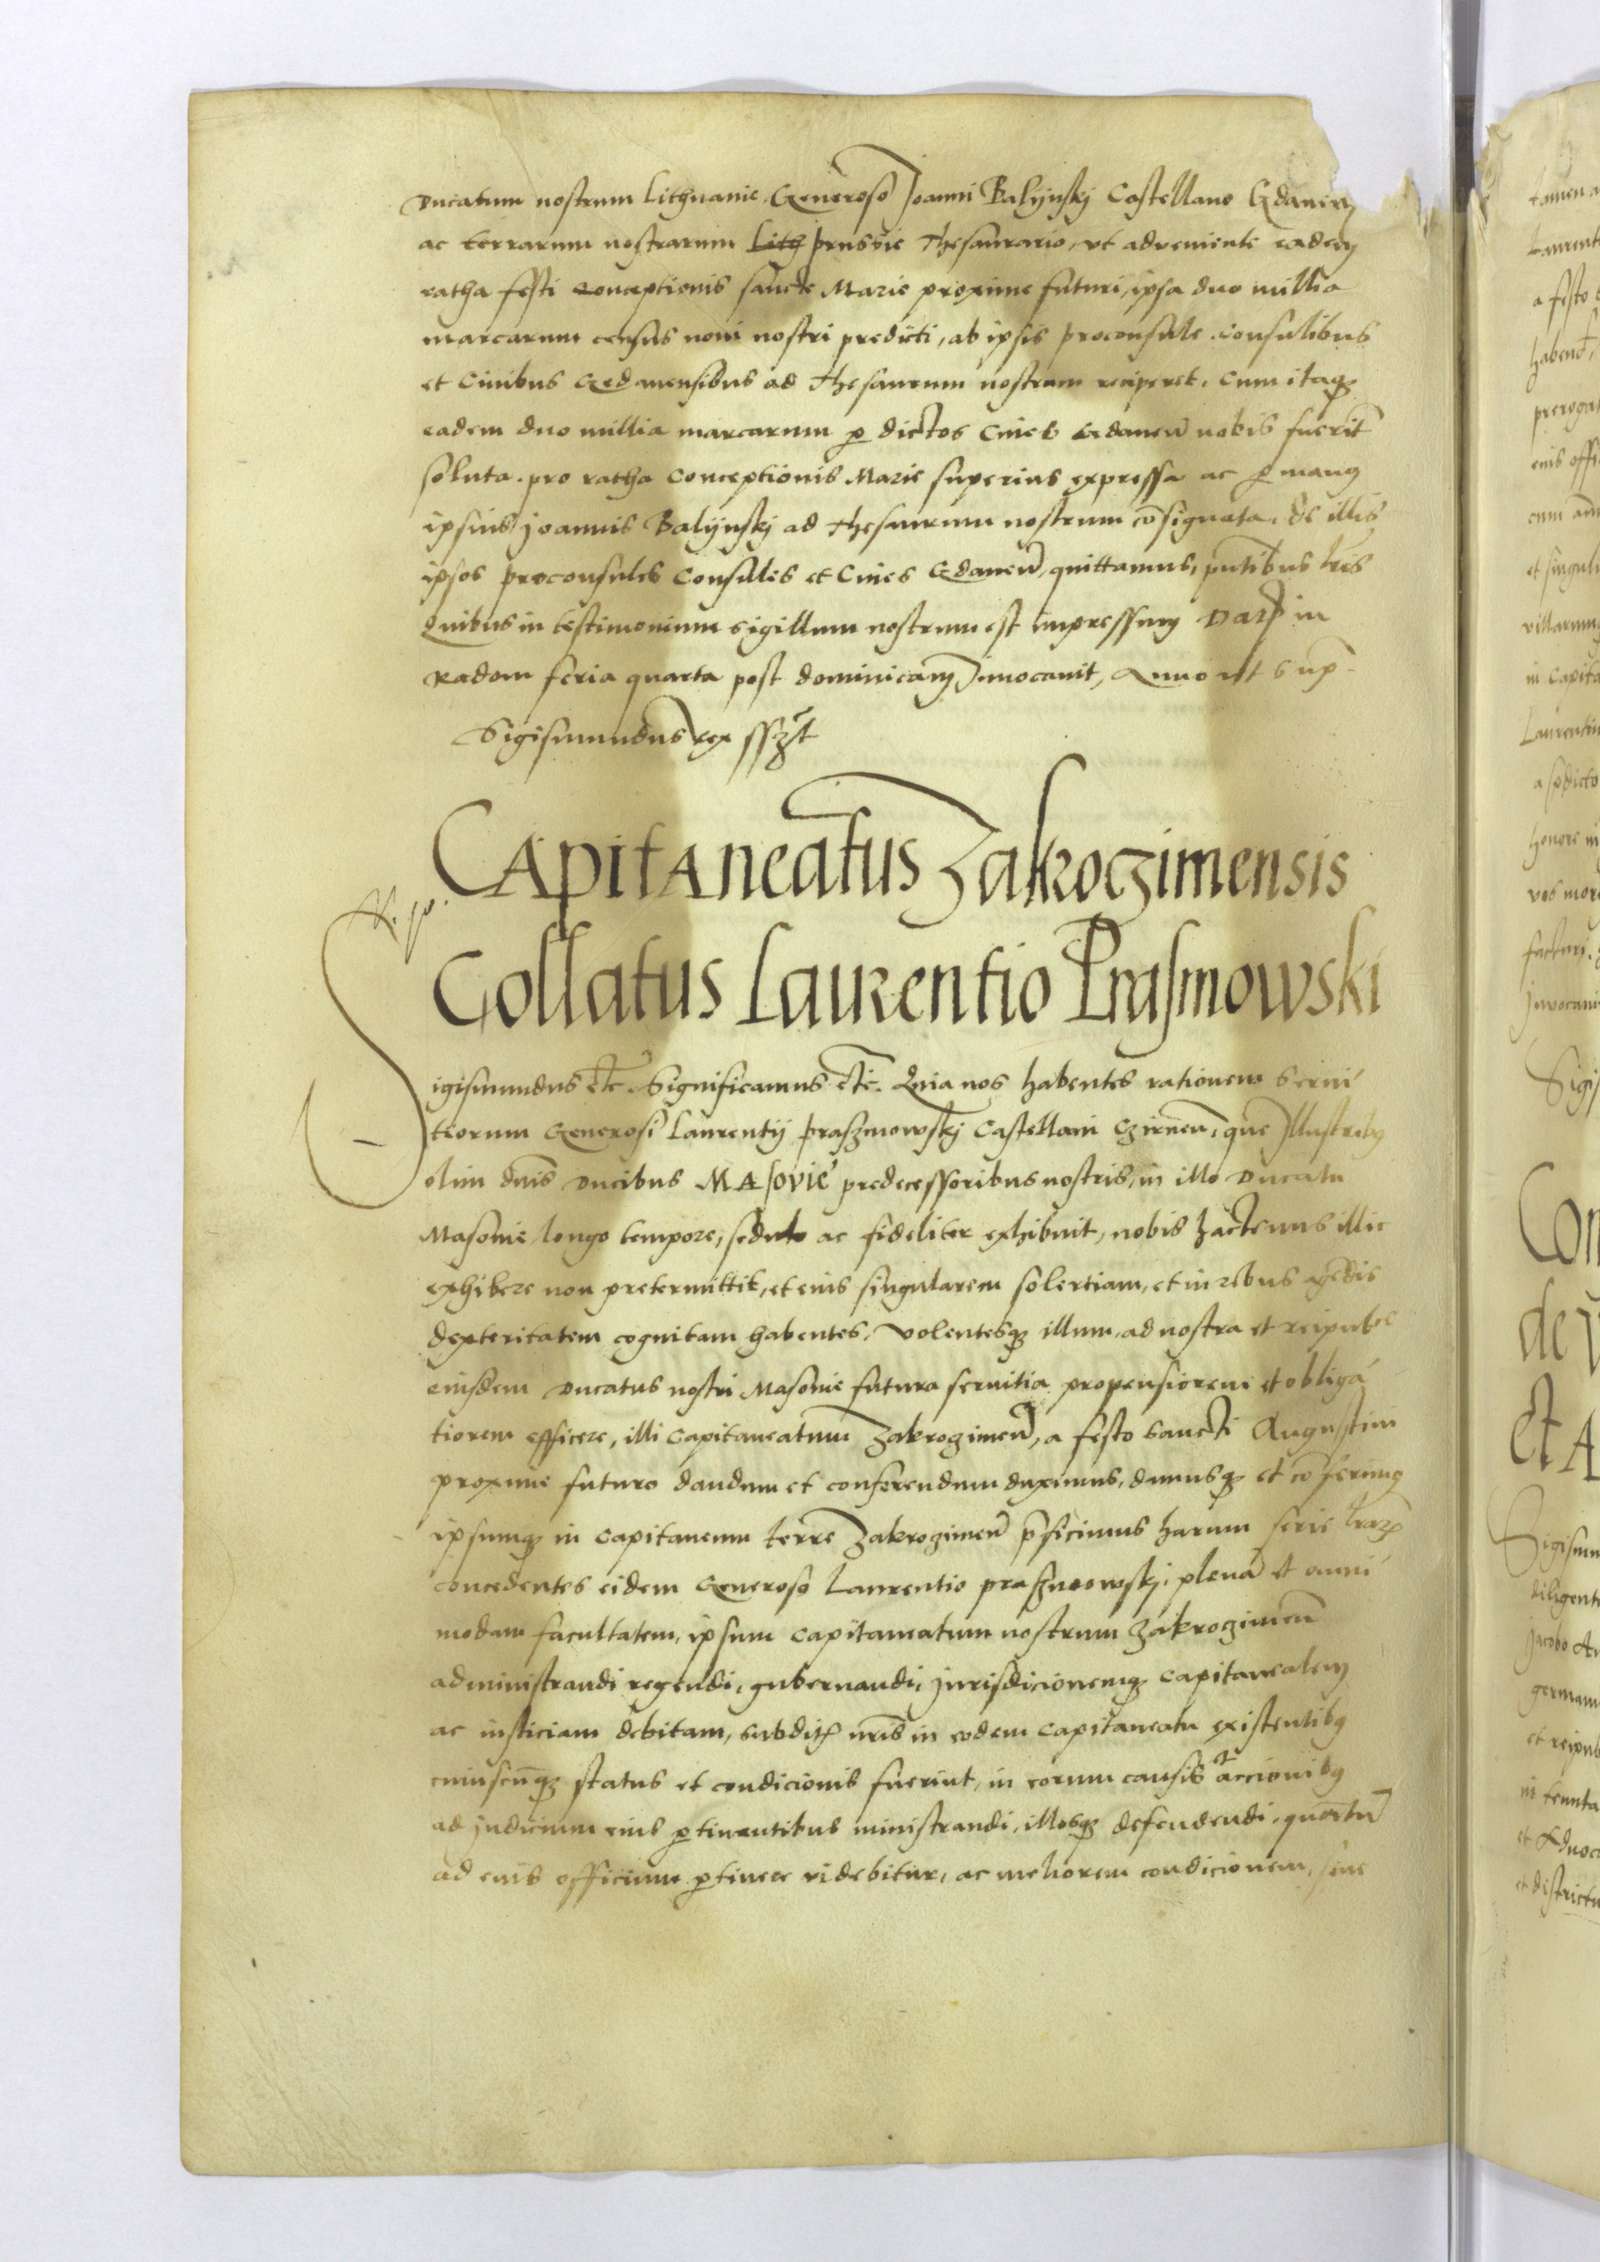 Ducatum nostrum Lithuanie, Generoso Joanni Balijnskj Castellano Gdanien
ac terrarum nostrarum Lith prussie Thesaurario, vt adveniente eadem
ratha festi Conceptionis sancte Marie proxime futuri, ipsa duo millia
marcarum census novi nostri predicti, ab ipsis proconsule Consulibus
et Civibus Gedanensibus ad Thesaurum nostrum reciperet, Cum itaqz
eadem duo millia marcarum p dictos Cives Gdanen nobis fuerit
soluta, pro ratha Conceptionis Marie superius expressa ac p manus
ipsius Joannis Balijnskj ad Thesaurum nostrum cosignata, de illis
ipsos proconsules Consules et Cives Gdanen, quittamus, pntibus lris
Quibus in testimonium sigillum nostrum est impressum Datz in
Radom feria quarta post dominicam Invocavit, Anno ut sup
Sigismundus rex sszt
Capitaneatus Zakroczimensis
R. p.
Collatus Laurentio Prasmowski
Sigismundus etc Significamus etc. Quia nos habentes rationem servi
tiorum Generosi Laurentij praszmowskj Castellani Czirnen, que Illustribus
olim dnis Ducibus Masovie predecessoribus nostris, in illo Ducatu
Masovie longo tempore, sedulo ac fideliter exhibuit, nobis hactenus illic
exhibere non pretermittit, et eius singularem solertiam, et in rebus agedis
dexteritatem cognitam habentes, Volentesqz illum, ad nostra et reipubce
eiusdem Ducatus nostri Masovie futura servitia propensiorem et obliga
tiorem efficere, illi Capitaneatum Zakrozimen, a festo sancti Augustini
proxime futuro dandum et conferendum duximus, damusqz et coferimus
ipsumqz in Capitaneum terre Zakrozimen pficimus harum serie lrarz
concedentes eidem Generoso Laurentio praszmowskj, plena et omni
modam facultatem, ipsum Capitaneatum nostrum Zakrozimen
administrandi regendi, gubernandi, jurisdicionemqz Capitanealem
ac iusticiam debitam, subditis nris in eodem Capitaneatu existentibus
cuiuscunqz status et condicionis fuerint, in eorum causis et accionibus
ad Judicium eius ptinentibus ministrandi, illosqz defendendi, quantu
ad eius officium ptinere videbitur, ac meliorem condicionem, sine